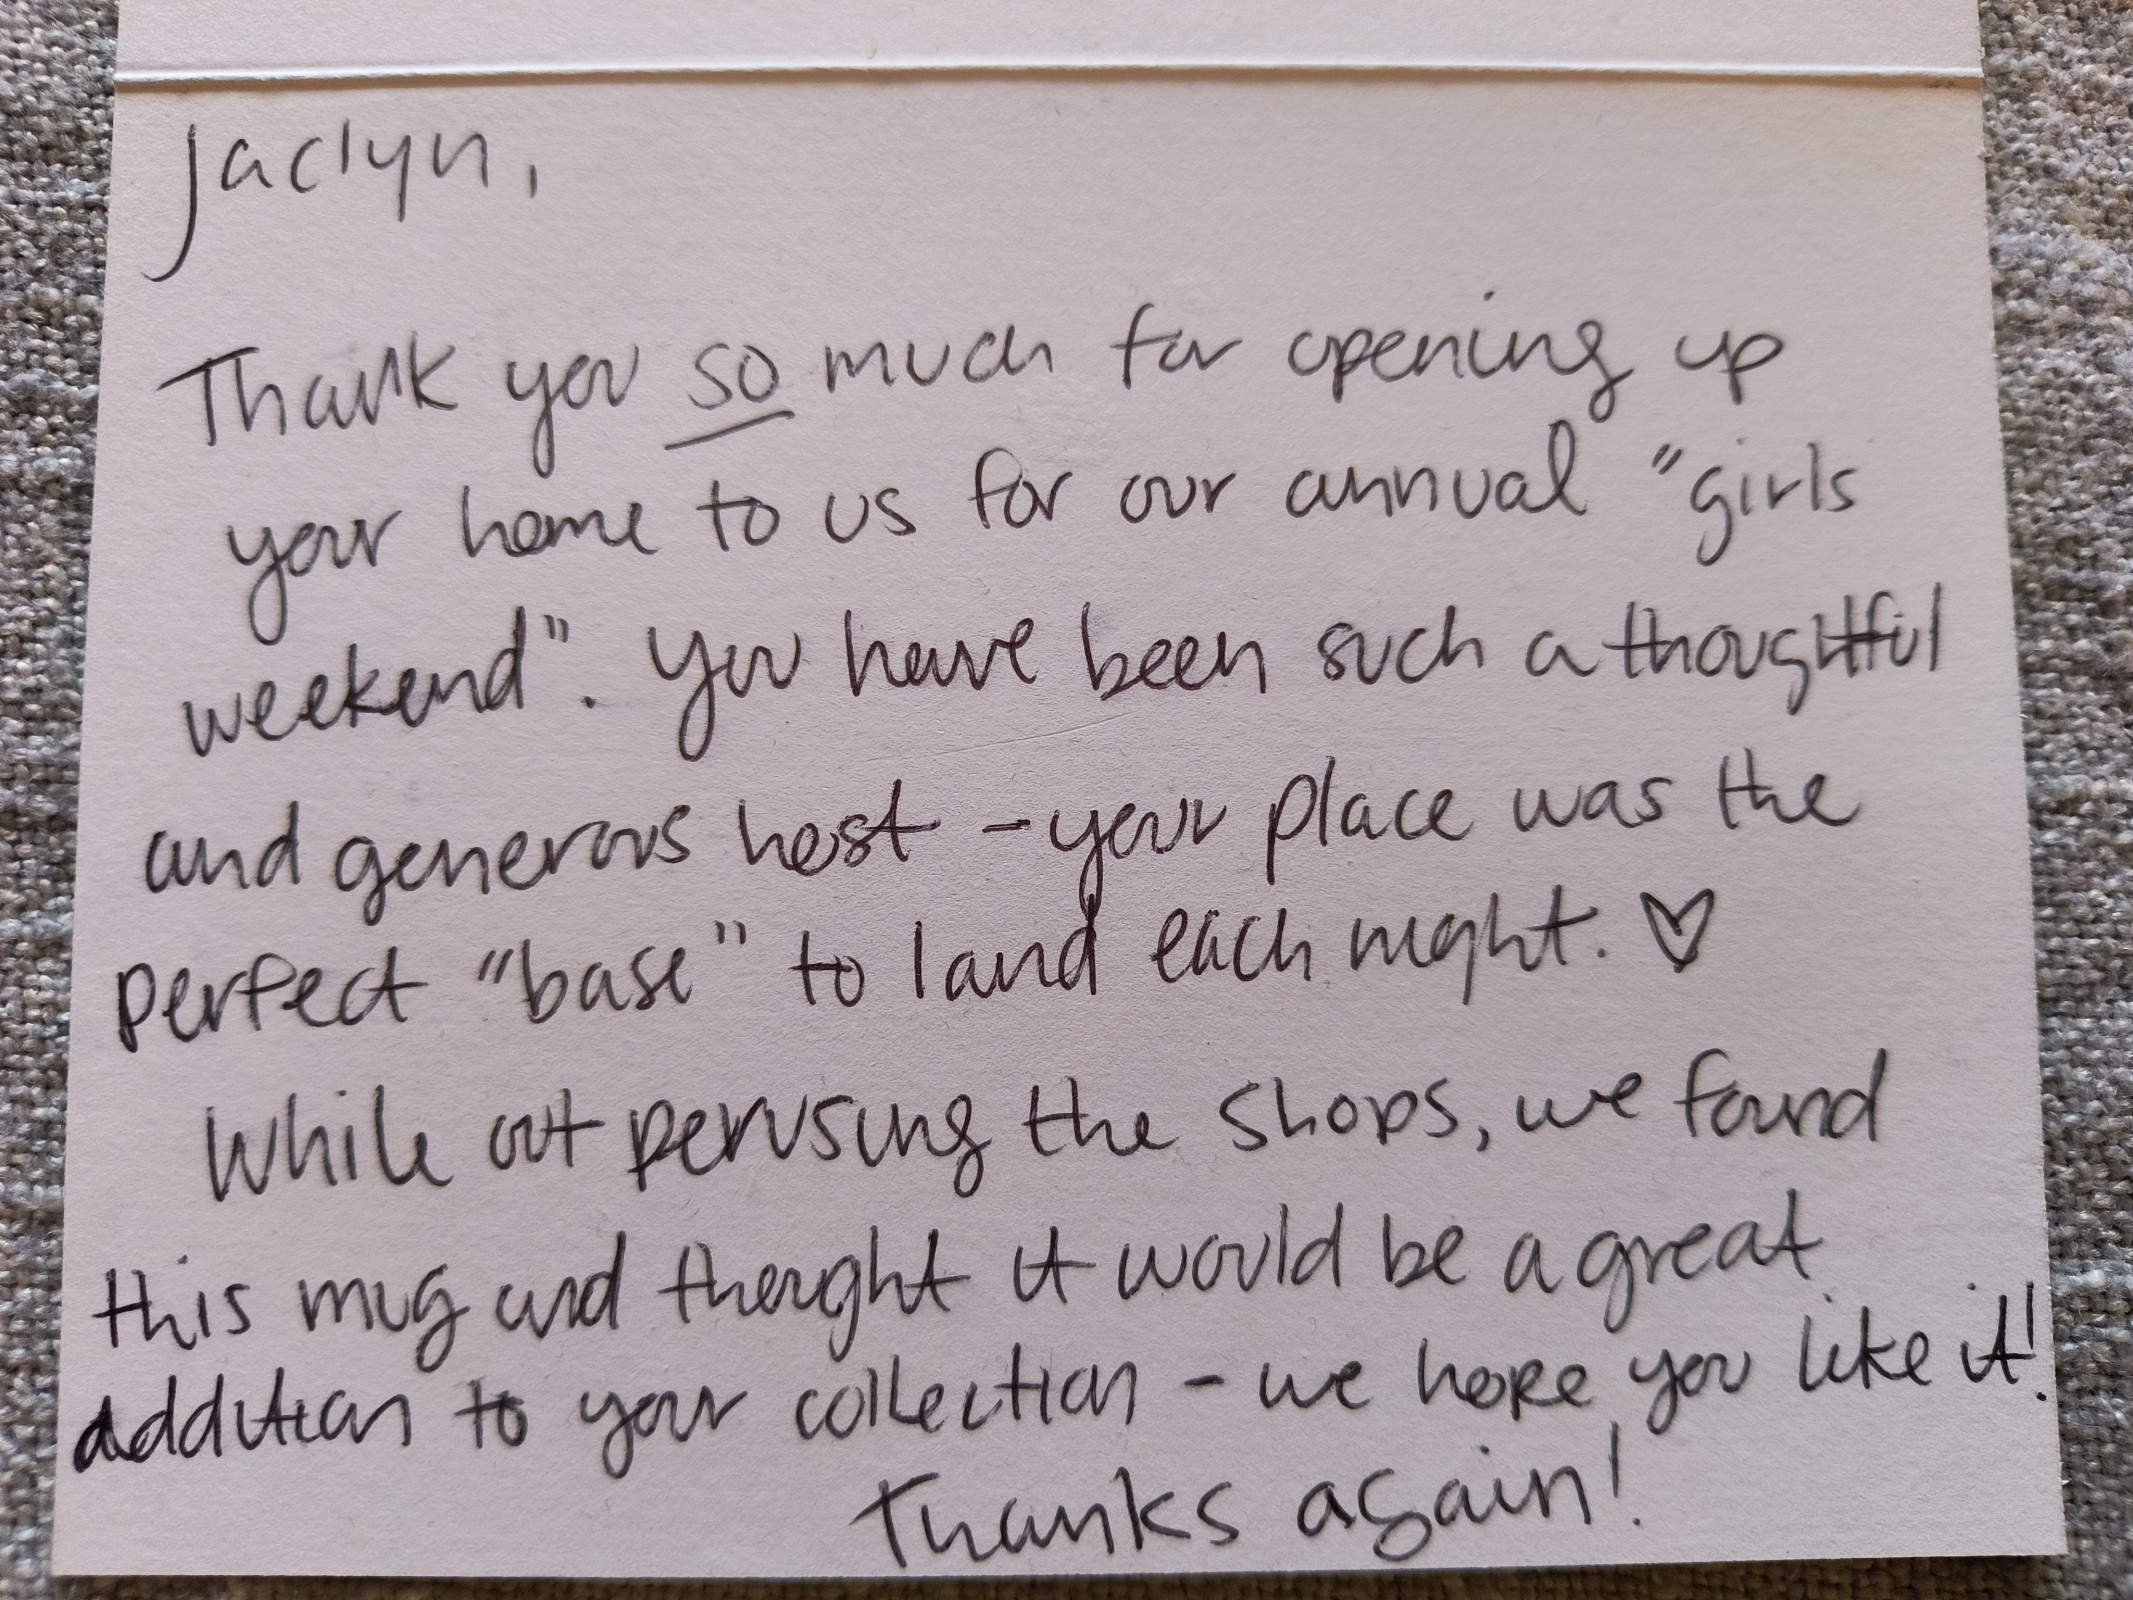 Jaclyn,
Thank you so much for opening up
your home to us for our annual "girls
weekend". You have been such a thoughtful
and generous host - your place was the
perfect "base" to land each night. ♡
While out perusing the shops, we found
this mug and thought it would be a great
addition to your collection - we hope you like it!
Thanks again!